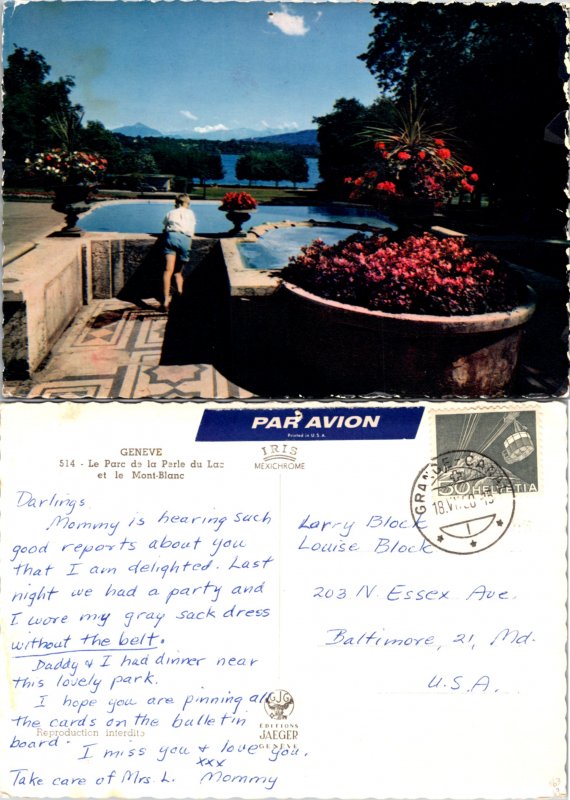 GENEVE
514 - Le Parc de la Perle du Lac
et le Mont-Blanc
IRIS
MEXICHROME
PAR AVION
Printed in U.S.A.
HELVETIA
18.VII.60-19
Darlings,
Mommy is hearing such
good reports about you
that I am delighted. Last
night we had a party and
I wore my gray sack dress
without the belt.
Daddy & I had dinner near
this lovely park.
I hope you are pinning all
the cards on the bulletin
board.
I miss you & love you.
xxx
Take care of Mrs. L. Mommy
Larry Block
Louise Block
203 N. Essex Ave.
Baltimore, 21, Md.
U.S.A.
Reproduction interdite
EDITIONS
JAEGER
GENÈVE